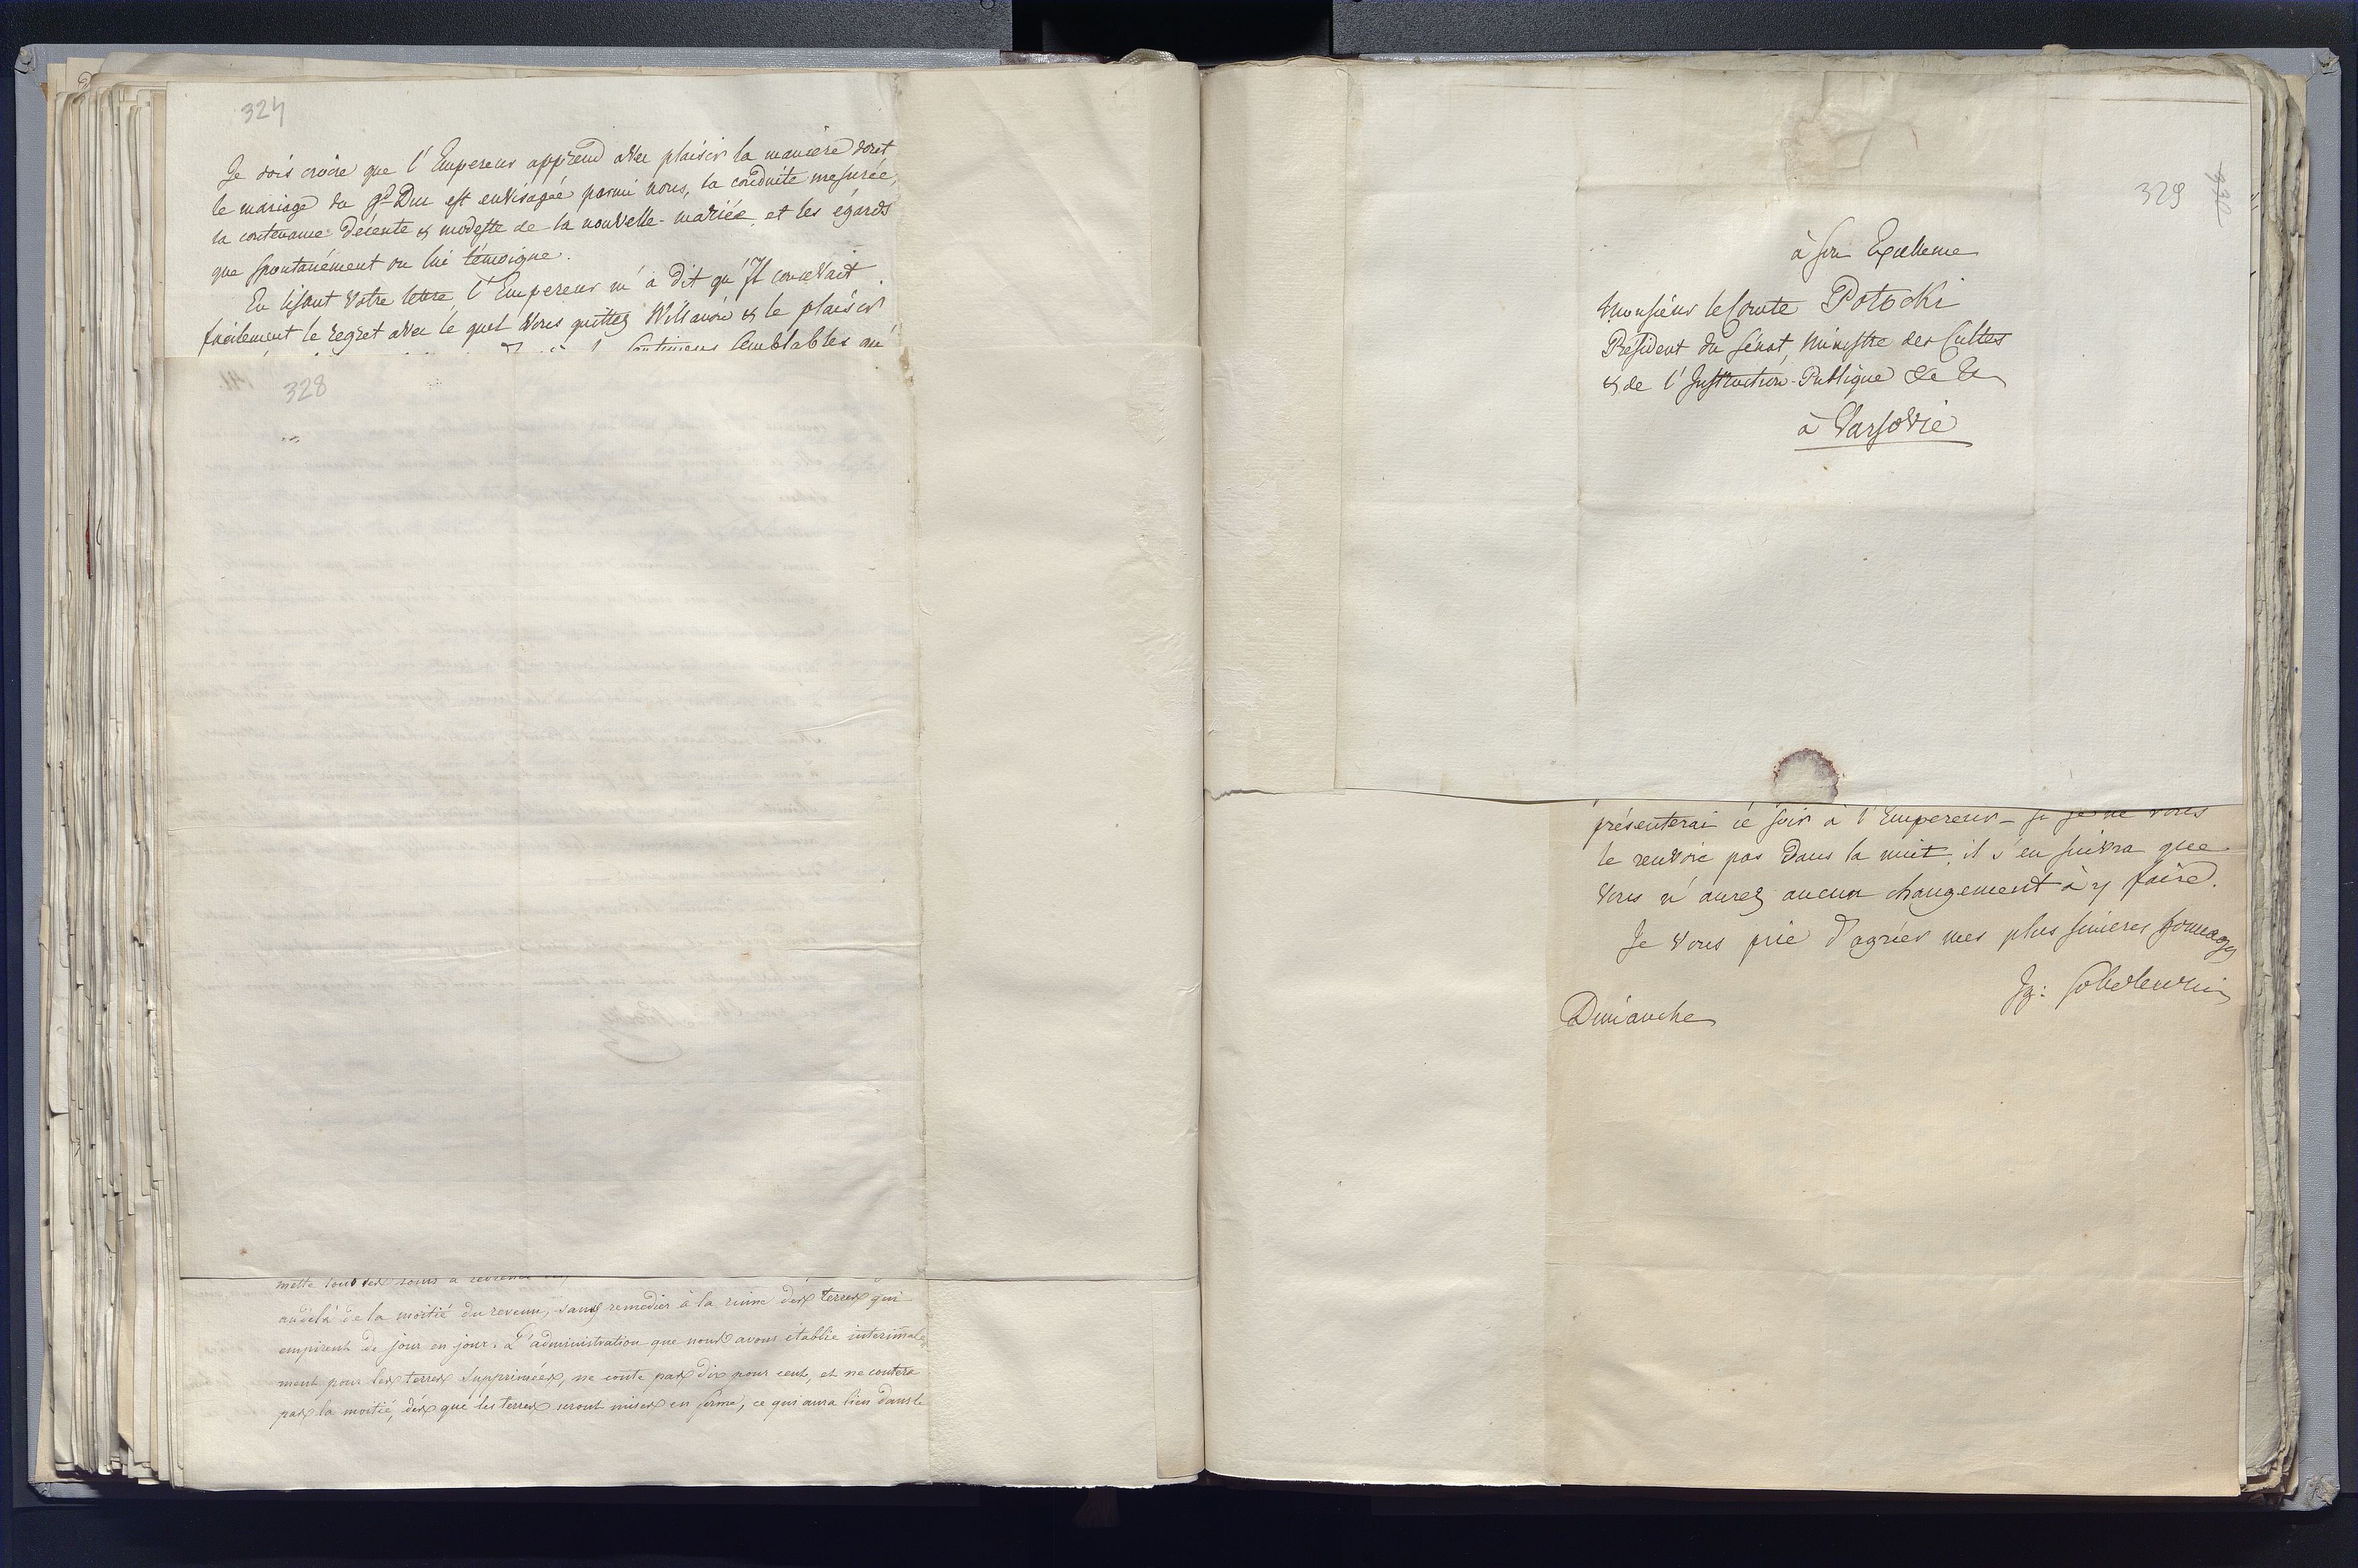 324
Je dois croire que l'Empereur apprend avec plaisir la maniere dont
le mariage du gd Duc est envisagée parmi nous, la conduite mesurée,
la contenance décente & modeste de la nouvelle-mariée et les égards
que spontanément on lui témoigne.
En lisant Votre lettre l'Empereur m'a dit qu'Il concevait
facilement le regret avec le quel Vous quittez Willanow & le plaisir
sentimens semblables
328
mette tous ses soins à
audelà de la moitié du revenu, sans remedier à la ruine des terres qui
empirent de jour en jour. L'administration que nous avons établie interimale
ment pour les terres supprimées, ne coute pas dix pour cent, et ne coutera
pas la moitié, dès que les terres seront mises en ferme, ce qui aura lieu dans le
329
330
à Son Excellence
Monsieur le Comte Potocki
Président du Sénat, Ministre des Cultes
& de l'Instruction-Publique &c &c
à Varsovie
présenterai ce soir à l'Empereur – si je ne vous
le renvoie pas dans la nuit, il s'en suivra que
Vous n'aurez aucun changement à y faire.
Je Vous prie d'agréer mes plus sinceres homages
Ig: Sobolewski
Dimanche